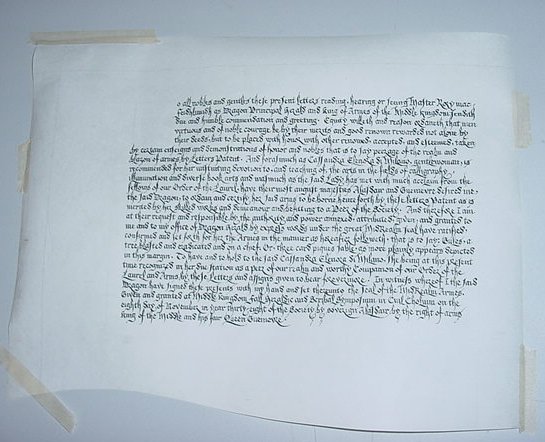 o all nobles and gentles these present letters reading, hearing or seing Master Rory mac
feidhlimidh as Dragon Principal Herald and King of Armes of the Middle Kingdom sendith
due and humble commendation and greeting. Equity willeth and reason ordaineth that men
virtuous and of noble courage be by their merits and good renown rewarded not alone by
their deeds but to be placed with honor with other renowned accepted and esteemed, taken
by certain ensigns and demonstrations of honor and nobles that is to say peerage of the realm and
blazon of armes by Letters Patent. And forasmuch as Cassandra Elenora di Milano, gentlewoman, is
recommended for her unstinting devotion to and teaching of the arts in the fields of calligraphy,
illumination and diverse book arts and inasmuch as the said Lady has met with much acclaim from the
fellows of our Order of the Laurel, have their most august majesties Alasdair and Guenievre desired me
the said Dragon to ordain and certify her said array to be borne henceforth by these letters Patent as is
merited by her skilled works and demeanour and befitting to a Peer of the Society. And therefore I am
at their request and responsible by the authority and power annexed, attributed, given, and granted to
me and to my office of Dragon Herald by express words under the great MidRealm seal have ratified
confirmed and set forth for her the Armes in the manner as hereafter followeth that is to say: Gules, a
tree blasted and eradicated and on a chief Or three card piques sable, as more plainly appears depicted
in this margin. To have and to hold to the said Cassandra Elenora di Milano. She being at this present
time recognized in her due station as a peer of our realm and worthy Companion of our Order of the
Laurel and Armes by these Letters and assigns given to bear forevermore. In witness whereof I the said
Dragon have signed these presents with my hand and set thereunto the Seal of the MidRealm Armes.
Given and granted at Middle Kingdom Fall Heraldic and Scribal Symposium in Cynl Cholwm on the
eighth day of November in year thirty eight of the Society by sovereign Alasdair, by the right of arms
king of the Middle and his fair Queen Guenievre.